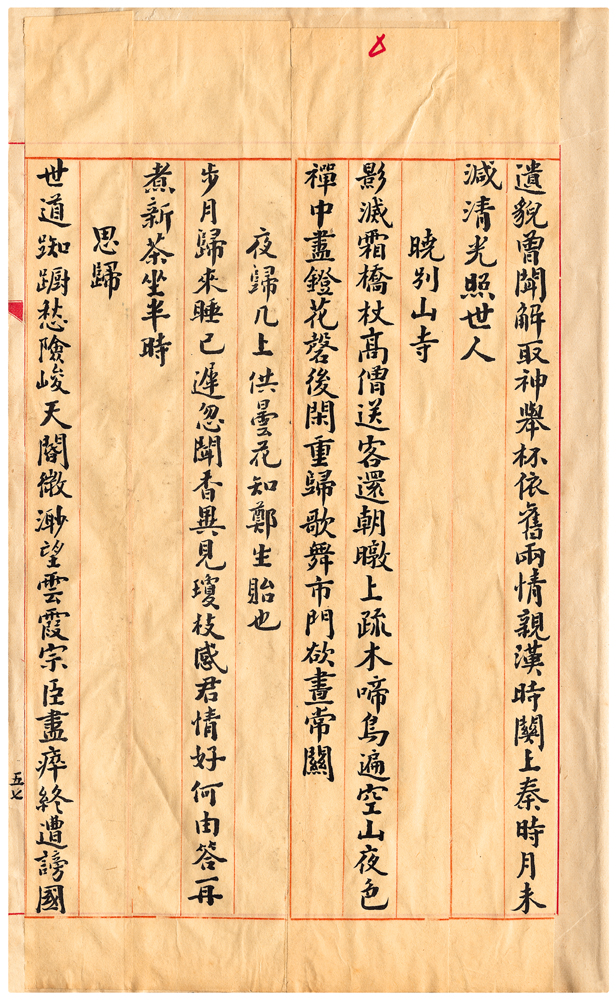 遺貌曾聞解取神舉杯依舊兩情親漢時關上秦時月未
減清光照世人
曉別山寺
影滅霜橋杖高僧送客還朝暾上疏木啼鳥遍空山夜色
禪中盡鐙花磬後閑重歸歌舞市門欲晝常關
夜歸几上供曇花知鄭生貽也
步月歸來睡已遲忽聞香異見瓊枝感君情好何由答一再
煮新茶坐半時
思歸
世道踟躕愁險峻天閽微渺望雲霞宗臣盡瘁終遭謗國
五七